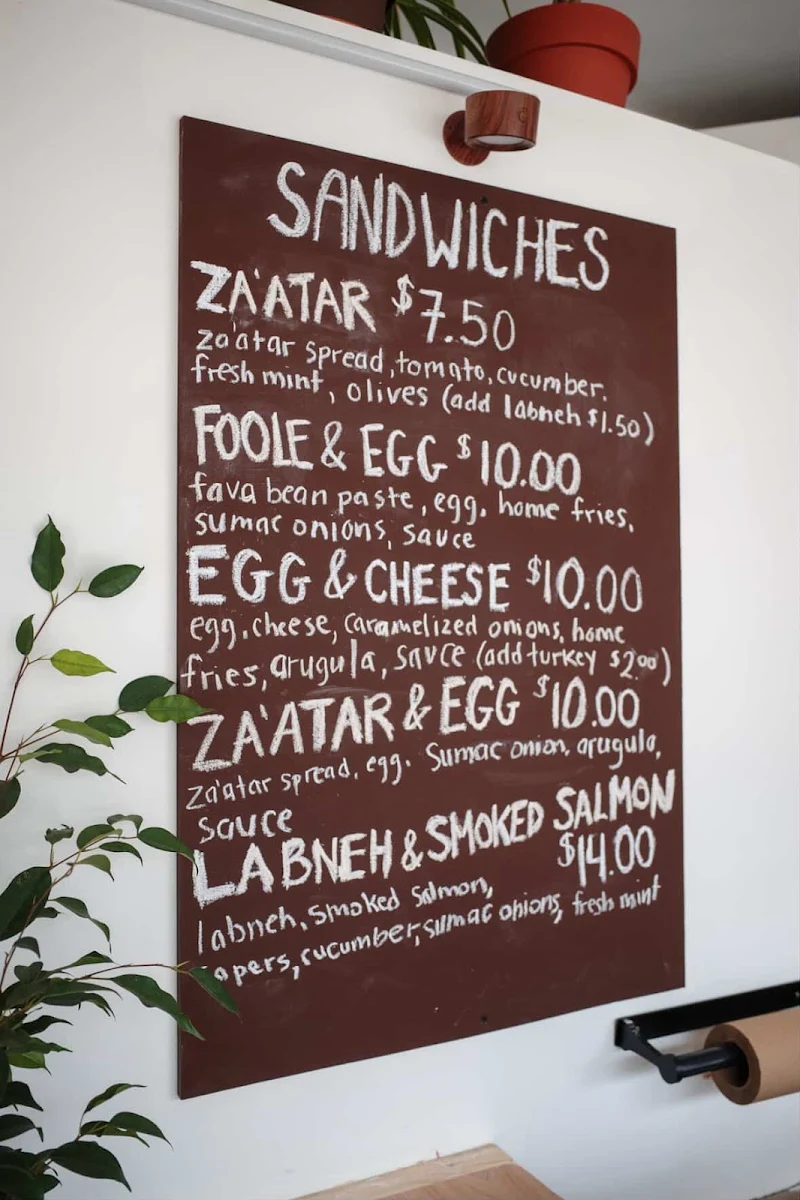 SANDWICHES
ZA'ATAR $7.50
za'atar spread, tomato, cucumber.
fresh mint, olives (add labneh $1.50)
FOOLE & EGG $10.00
fava bean paste, egg, home fries,
sumac onions, sauce
EGG & CHEESE $10.00
egg, cheese, caramelized onions, home
fries, arugula, sauce (add turkey $2.00)
ZA'ATAR & EGG $10.00
za'atar spread, egg. Sumac onion, arugula,
sauce
LABNEH & SMOKED SALMON
$14.00
labneh, smoked salmon,
apers, cucumber, sumac onions, fresh mint